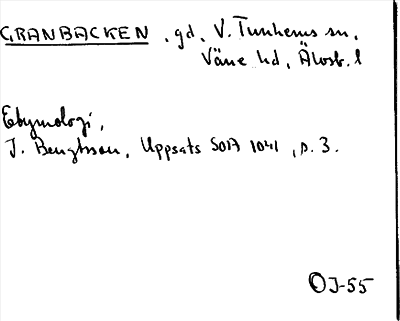 GRANBACKEN, gd, V. Tunhems sn,
Väne hd, Älvsb. l
Etymologi,
J. Bengtsson, Uppsats SOA 1041, s. 3.
OJ-55